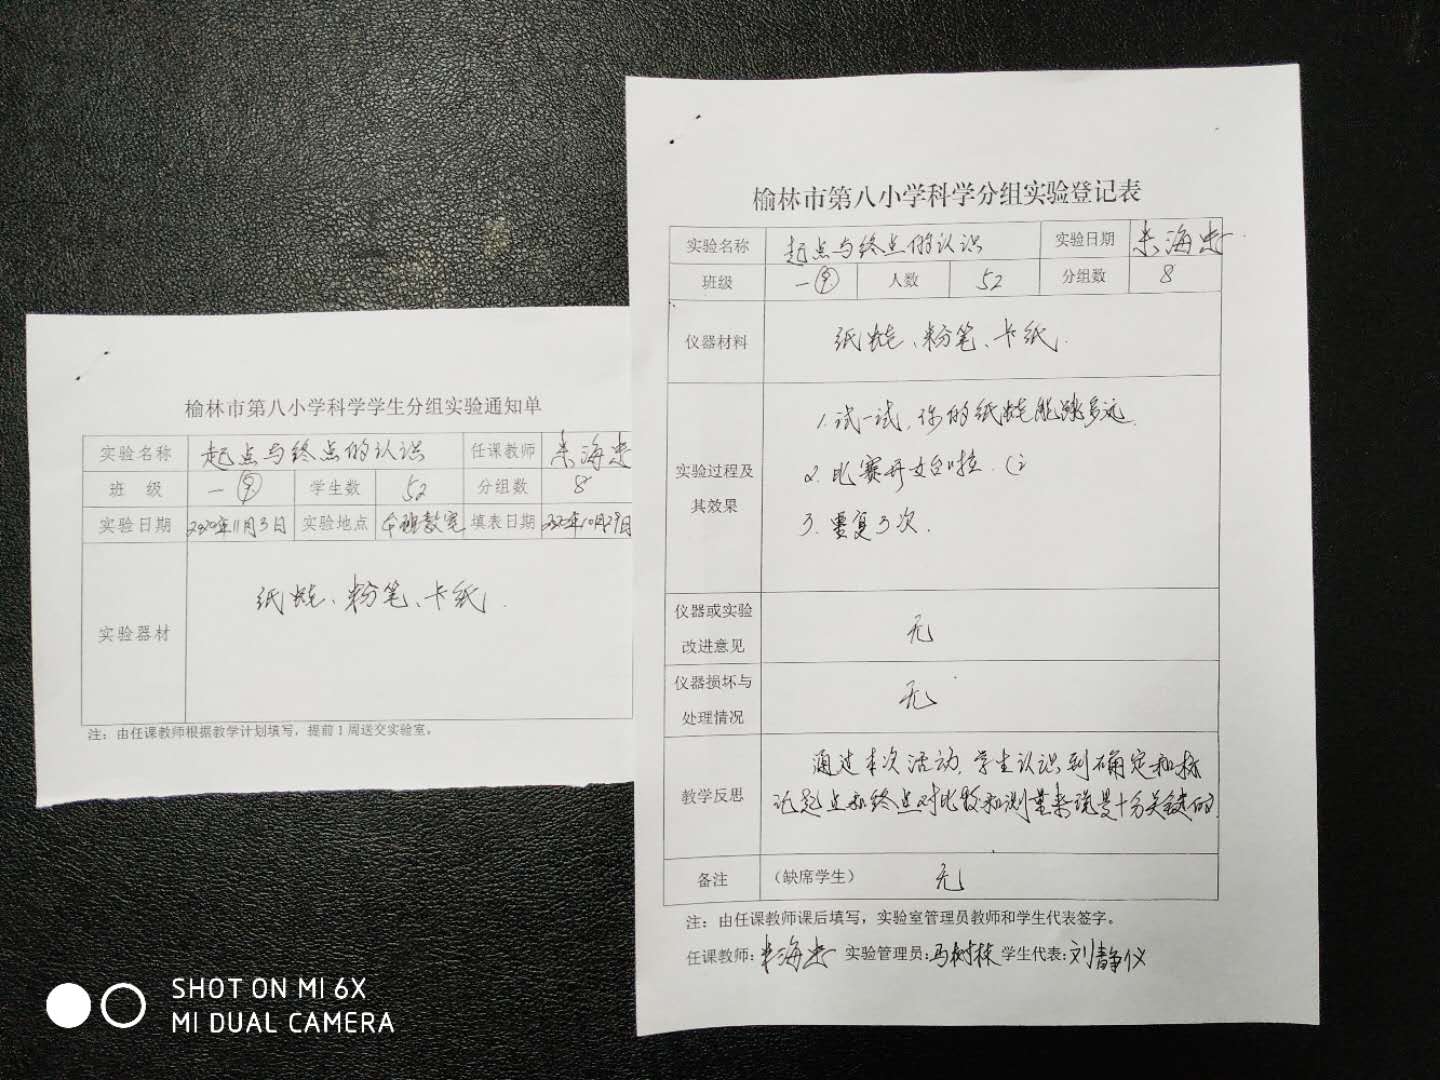 榆林市第八小学科学学生分组实验通知单
实验名称 起点与终点的认识 任课教师 海忠
班 级 一⑨ 学生数 52 分组数 8
实验日期 2020年11月3日 实验地点 本班教室 填表日期 2020年10月29日
实验器材 纸蛙、粉笔、卡纸.
注：由任课教师根据教学计划填写，提前1周送交实验室。
榆林市第八小学科学分组实验登记表
实验名称 起点与终点的认识 实验日期 海忠
班级 一⑨ 人数 52 分组数 8
仪器材料 纸蛙、粉笔、卡纸.
实验过程及
其效果
1.试一试,你的纸蛙能跳多远.
2.比赛开始啦.
3.重复3次.
仪器或实验
改进意见
无
仪器损坏与
处理情况
无
教学反思
通过本次活动,学生认识到确定和标
记起点和终点对比较和测量来说是十分关键的.
备注 （缺席学生） 无
注：由任课教师课后填写，实验室管理员教师和学生代表签字。
任课教师: 海忠 实验管理员:马树林 学生代表:刘静仪
SHOT ON MI 6X
MI DUAL CAMERA